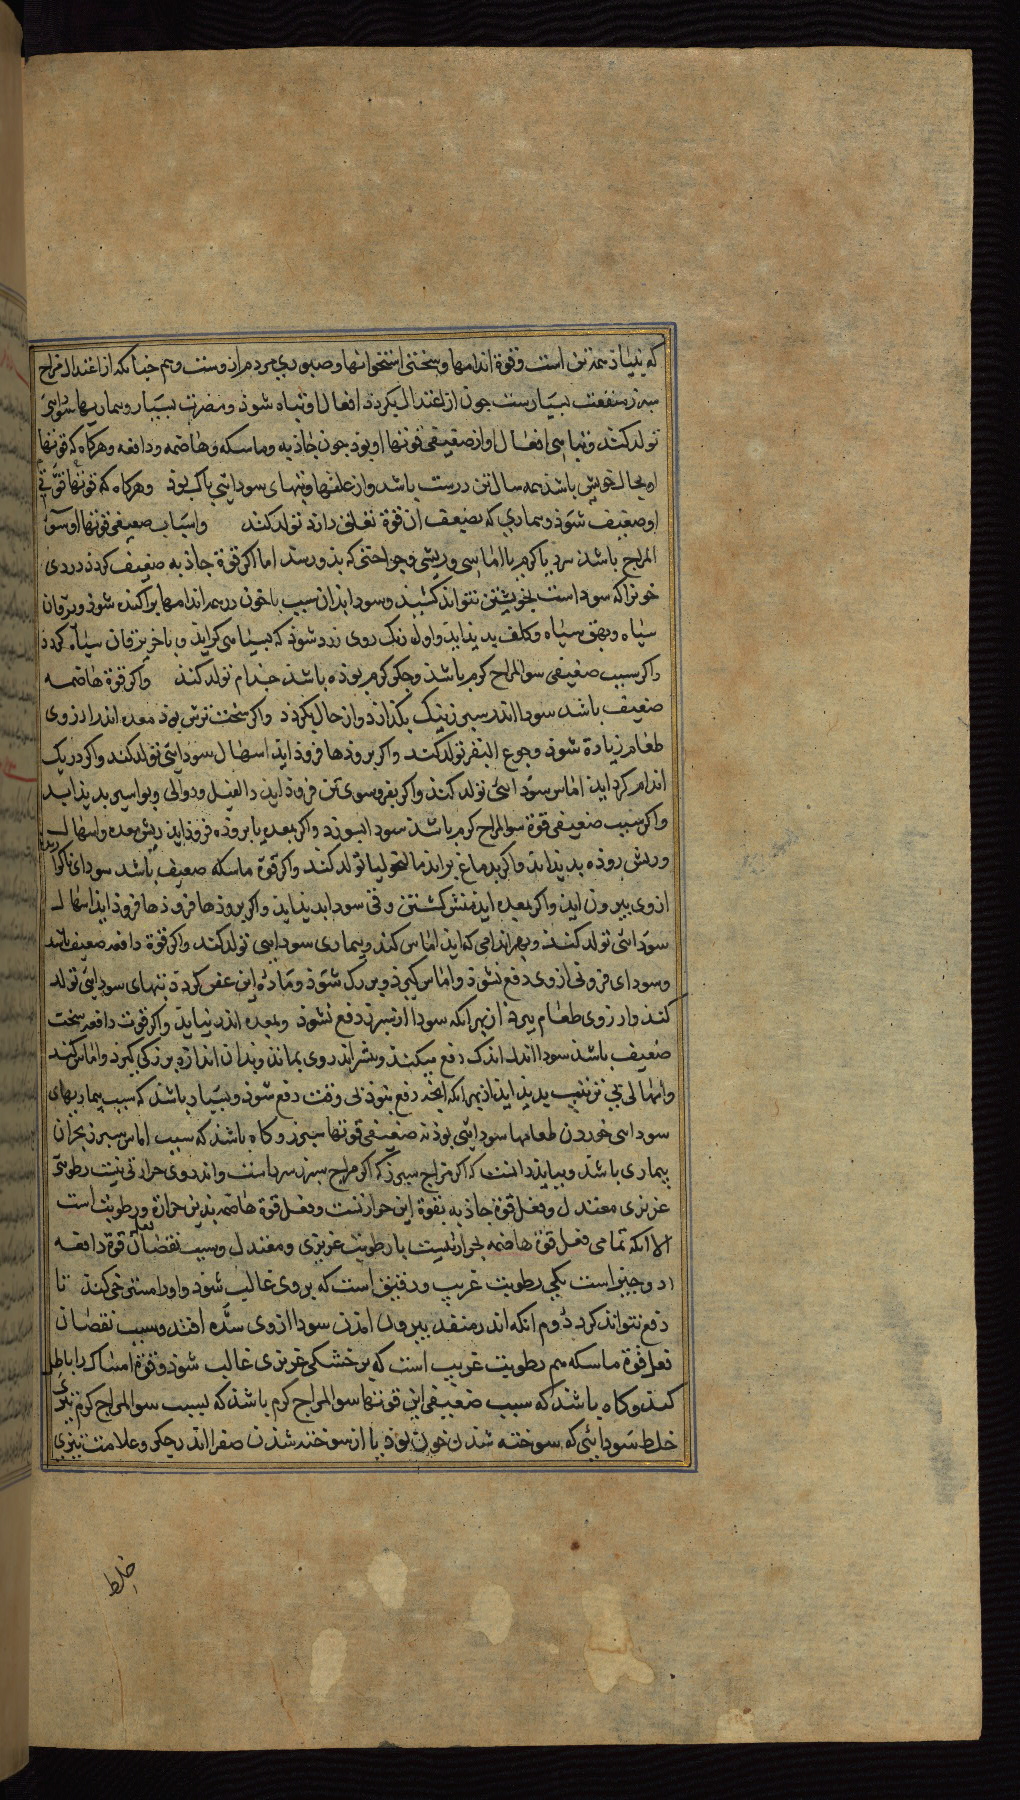 که بنیاد همه تن است و قوة اندامها و سختی استخوانها و صبوری مردم ازوست و هم چنانکه از اعتدال مزاج
سپرز منفعت بسیارست چون از اعتدال بکردد افعال او تباه شوذ و مضرت بسیار و بیماریها سوداسی
تولد کند و تباهی افعال او از ضعیفی قوتها او بوذ چون جاذبه و ماسکه و هاضمه و دافعه و هرکاه که قوتها
او بحال خویش باشذ همه سال تن درست باشد و از علتها و تبهای سودایی پاک بوذ وهرکاه که قوتها قوتی
او ضعیف شوذ و بیماری که بضعف ان قوة تعلق دارد تولد کند واسباب ضعیفی قوتها او سو
المزاج باشذ سرد یا کرم یا اماسی و ریشی و جراحتی که بذو رسذ اما اکر قوة جاذبه ضعیف کردذ دردی
خونرا که سوداست بخویشتن نتواند کشید و سودا بذان سبب با خون در همه اندامها پراکنده شوذ و یرقان
سیاه و بهق سیاه و کلف پدیذ اید و اول رنک روی زرد شوذ که بسیاهی کراید و باخر یرقان سیاه کردذ
واکر سبب ضعیفی سو المزاج کرم باشذ و جکر کرم بوذه باشذ جذام تولد کند واکر قوة هاضمه
ضعیف باشد سودا اندر سپرز نیک بکذارد و از حال بکردد واکر سخت ترش بوذ معده اندر ارزوی
طعام زیادة شوذ و جوع البقر تولد کند واکر بروذها فروذ اید اسهال سودایی تولد کند واکر در یک
اندام کرد اید اماس سودایی تولد کند واکر بفروسوی تن فروذ اید دا الفیل و دوالی و بواسیر پدیذ اید
واکر سبب ضعیفی قوة سو المزاج کرم باشذ سودا بسوزد واکر بمعده یا بروذه فروذ اید ریش معده و اسهال
و ریش روذه پدیذ اید واکر بدماغ براید مالیخولیا تولد کند واکر قوة ماسکه ضعیف باشد سودای ناکوار
ازوی بیرون اید واکر بمعده اید منش کشتن و قی سودا پدیذ اید واکر بروذها فروذ اید اسهال
سودایی تولد کند و بهر اندامی که اید اماس کند و بیماری سودایی تولد کند واکر قوة دافعه ضعیف باشد
و سودای فزونی ازوی دفع نشوذ و اماس کیرد و بزرک شوذ و ماده این عفن کردد تبهای سودایی تولد
کند و ارزوی طعام ببرد از بهر انکه سودا از سپرز دفع نشوذ و بمعده اندر نیاید واکر قوت دافعه سخت
ضعیف باشذ سودا اندک اندک دفع میکند و بیشتر اندر وی بماند و بذان اندازه بزرکی کیرد و اماس کند
و اسهالی بی ترتیب پدیذ اید از بهر انکه انچه دفع بتوذ بی وقت دفع شوذ و بسیار باشذ که سبب بیماریهای
سوداسی خوردن طعامها سودایی بوذ نه ضعیفی قوتها سپرز و کاه باشذ که سبب اماس سپرز بحران
بیماری باشد و بباید دانست که اکر مزاج سپرز که اکر مزاج سپرز سردست و اندروی حرارتی نیست رطوبتی
غریزی معتدل و فعل قوة جاذبه بقوة این حرارتست و فعل قوة هاضمه بذین حرارة و رطوبت است
الا انکه تمامی فعل قوة هاضمه بحرارتست با رطوبت غریزی و معتدل و سبب نقصان فعل قوة دافعه
دو چیز است یکی رطوبت غریب و رقیق است که بر وی غالب شود و اورا سست می کند تا
دفع نتواند کرد دوم انکه اندر منفذ بیرون امذن سودا ازوی سده افتد و سبب نقصان
فعل قوة ماسکه هم رطوبت غریب است که بر خشکی غریزی غالب شوذ و قوة امساک را باطل
کند و کاه باشد که سبب ضعیفی این قوتها سو المزاج کرم باشذ که بسبب سو المزاج کرم تیزی
خلط سودایی که سوخته شدن خون بوذ یا از سوخته شذن صفرا اندر جکر و علامت تیزی
خلط